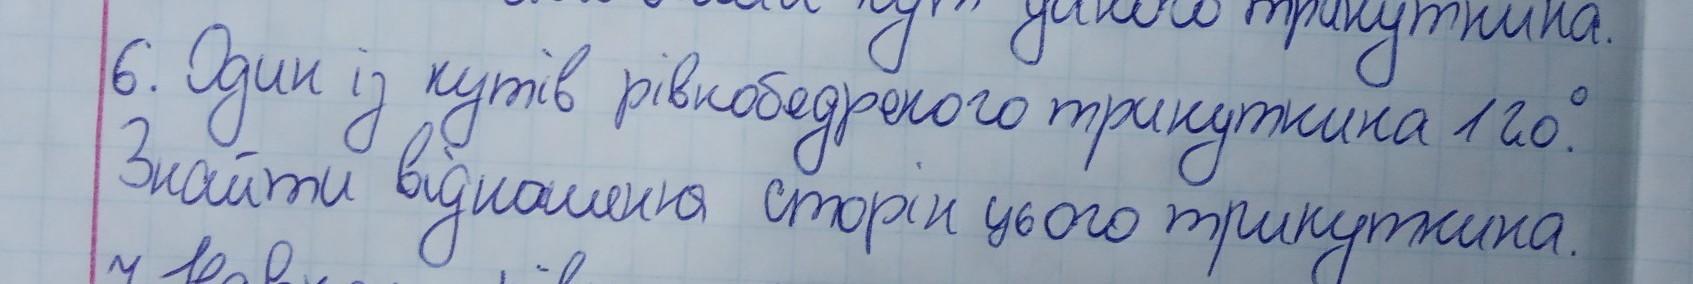 кут такого трикутника.
6. Один із кутів рівнобедреного трикутника 120°.
Знайти відношення сторін цього трикутника.